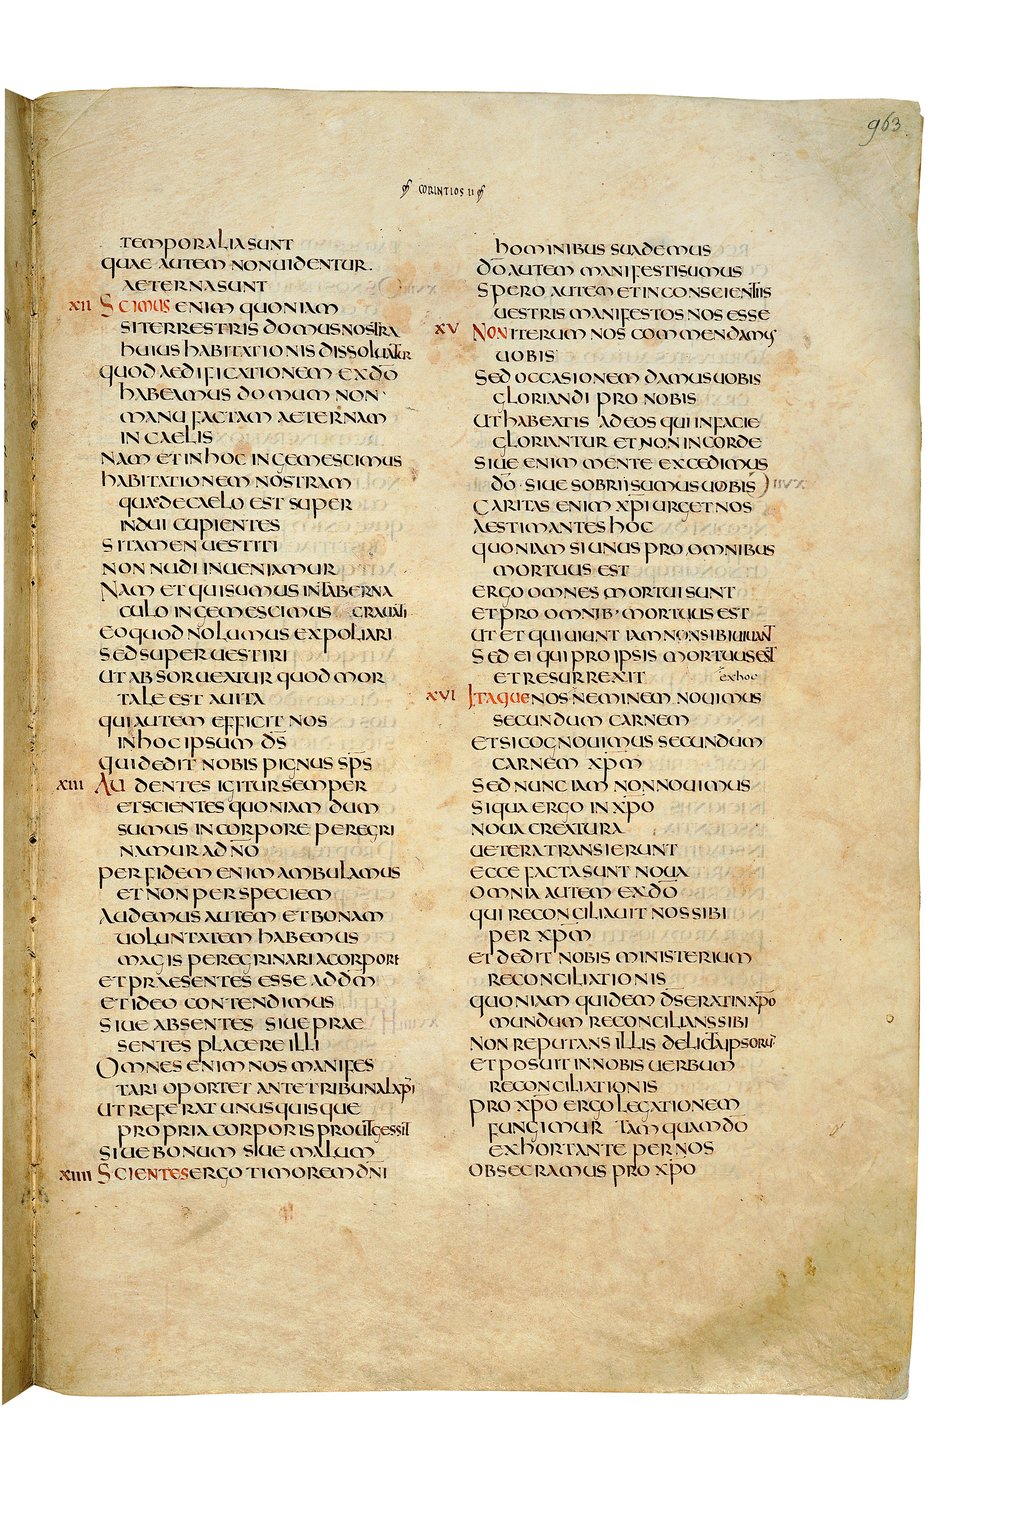 963
CORINTIOS II
TEMPORALIA SUNT
QUAE AUTEM NON UIDENTUR.
AETERNA SUNT
XII SCIMUS ENIM QUONIAM
SI TERRESTRIS DOMUS NOSTRA
HUIUS HABITATIONIS DISSOLUATUR
QUOD AEDIFICATIONEM EX DŌ
HABEAMUS DOMUM NON
MANU FACTAM AETERNAM
IN CAELIS
NAM ET IN HOC INGEMESCIMUS
HABITATIONEM NOSTRAM
QUAE DE CAELO EST SUPER
INDUI CUPIENTES
SI TAMEN UESTITI
NON NUDI INUENIAMUR
NAM ET QUI SUMUS IN TABERNA
CULO INGEMESCIMUS GRAUATI
EO QUOD NOLUMUS EXPOLIARI
SED SUPERUESTIRI
UT ABSORUEATUR QUOD MOR
TALE EST A UITA
QUI AUTEM EFFICIT NOS
IN HOC IPSUM D̄S
QUI DEDIT NOBIS PIGNUS SP̄S
XIII AUDENTES IGITUR SEMPER
ET SCIENTES QUONIAM DUM
SUMUS IN CORPORE PEREGRI
NAMUR A D̄NO
PER FIDEM ENIM AMBULAMUS
ET NON PER SPECIEM
AUDEMUS AUTEM ET BONAM
UOLUNTATEM HABEMUS
MAGIS PEREGRINARI A CORPORE
ET PRAESENTES ESSE AD D̄M
ET IDEO CONTENDIMUS
SIUE ABSENTES SIUE PRAE
SENTES PLACERE ILLI
OMNES ENIM NOS MANIFES
TARI OPORTET ANTE TRIBUNAL XP̄I
UT REFERAT UNUSQUISQUE
PROPRIA CORPORIS PROUT GESSIT
SIUE BONUM SIUE MALUM
XIIII SCIENTES ERGO TIMOREM D̄NI
HOMINIBUS SUADEMUS
DŌ AUTEM MANIFESTI SUMUS
SPERO AUTEM ET IN CONSCIENTIIS
UESTRIS MANIFESTOS NOS ESSE
XV NON ITERUM NOS COMMENDAMUS
UOBIS
SED OCCASIONEM DAMUS UOBIS
GLORIANDI PRO NOBIS
UT HABEATIS AD EOS QUI IN FACIE
GLORIANTUR ET NON IN CORDE
SIUE ENIM MENTE EXCEDIMUS
DŌ SIUE SOBRII SUMUS UOBIS
CARITAS ENIM XP̄I URGET NOS
AESTIMANTES HOC
QUONIAM SI UNUS PRO OMNIBUS
MORTUUS EST
ERGO OMNES MORTUI SUNT
ET PRO OMNIB· MORTUUS EST
UT ET QUI UIUNT IAM NON SIBI UIUANT
SED EI QUI PRO IPSIS MORTUUS EST
ET RESURREXIT ex hoc
XVI ITAQUE NOS NEMINEM NOUIMUS
SECUNDUM CARNEM
ET SI COGNOUIMUS SECUNDUM
CARNEM XP̄M
SED NUNC IAM NON NOUIMUS
SI QUA ERGO IN XP̄O
NOUA CREATURA
UETERA TRANSIERUNT
ECCE FACTA SUNT NOUA
OMNIA AUTEM EX DŌ
QUI RECONCILIAUIT NOS SIBI
PER XP̄M
ET DEDIT NOBIS MINISTERIUM
RECONCILIATIONIS
QUONIAM QUIDEM D̄S ERAT IN XP̄O
MUNDUM RECONCILIANS SIBI
NON REPUTANS ILLIS DELICTA IPSORUM
ET POSUIT IN NOBIS UERBUM
RECONCILIATIONIS
PRO XP̄O ERGO LEGATIONEM
FUNGIMUR TAMQUAM DŌ
EXHORTANTE PER NOS
OBSECRAMUS PRO XP̄O